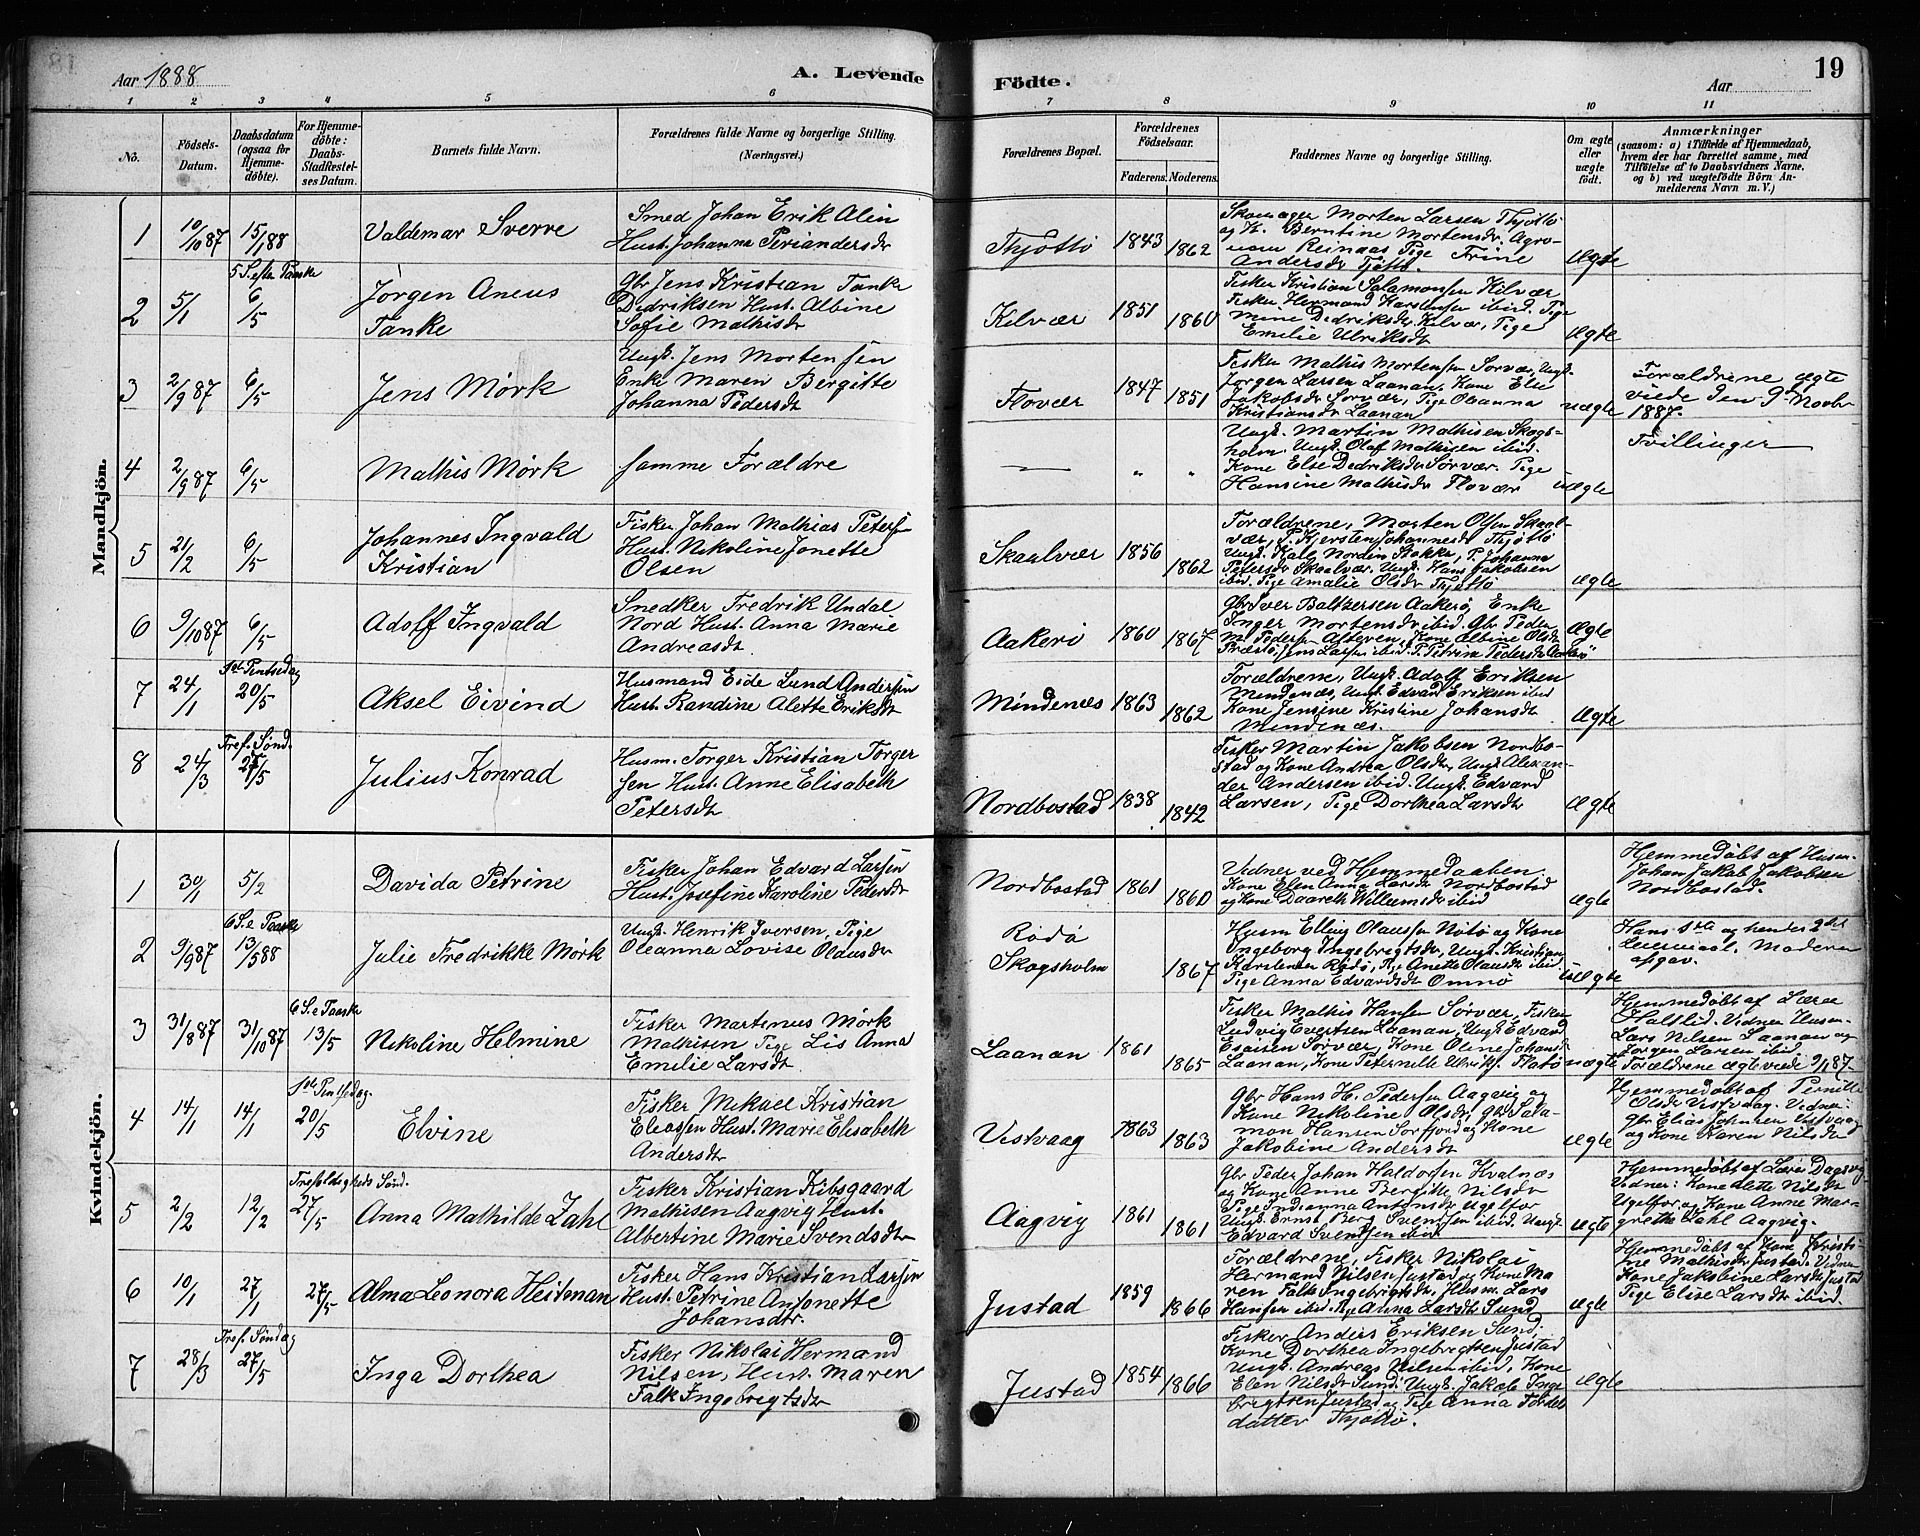 Aar 1888
A. Levende
Födte.
Aar
19
1 2 3 4 5 6 7 8 9 10 11
No.
Födsels-
Datum.
Daabsdatum
(ogsaa for
Hjemme-
döbte).
For Hjemme-
döbte:
Daabs-
Stadfæstel-
ses Datum.
Barnets fulde Navn.
Forældrenes fulde Navne og borgerlige Stilling.
(Næringsvei.)
Forældrenes Bopæl.
Forældrenes
Födselsaar.
Faderens. Moderens.
Faddernes Navne og borgerlige Stilling.
Om ægte
eller
uægte
födt.
Anmærkninger
(saasom: a) i Tilfælde af Hjemmedaab,
hvem der har forrettet samme, med
Tilföielse af to Daabsvidners Navne,
og b) ved uægtefödte Börn An-
melderens Navn m. V.)
Mandkjön.
1 10/10 87 15/1 88 Valdemar Sverre
Smed Johan Erik Alin
Hust. Johanna Periandersdr
Thjöttö 1843 1862
Skomager Morten Larsen Thjöttö
og K. Berntine Mortensdr. Agro-
nom Reinaas Pige Trine
Andersdr Tjöttö.
Ægte
2 5/1 5 S. efter Paaske 6/5
Jörgen Aneus
Tanke
Gbr Jens Kristian Tanke
Dedriksen Hust. Albine
Sofie Mathisdr
Kilvær 1851 1860
Fisker Kristian Salamonsen Kilvær
Fisker Hermand Karstensen ibid. Pige
Mine Dedriksdr Kilvær, Pige
Emilie Ulriksdr
Ægte
3 2/9 87 6/5 Jens Mörk
Ungk. Jens Mortensen
Enke Maren Bergitte
Johanna Pedersdr
Flovær 1847 1851
Fisker Mathis Mortensen Sorvær, Ungk.
Jörgen Larsen Laanan, Kone Else
Jakobsdr Sörvær, Pige Olianna
Kristiansdr Laanan
uægte
Forældrene ægte
viede den 9 Novbr
1887.
4 2/9 87 6/5 Mathis Mörk
samme Forældre
Ungk. Martin Mathisen Skogs-
holm. Ungk. Olaf Mathisen ibid.
Kone Else Dedriksdr Sörvær. Pige
Hansine Mathisdr Flovær
uægte
Tvillinger
5 21/2 6/5
Johannes Ingvald
Kristian
Fisker Johan Mathias Petersen
Hust. Nikoline Jonette
Olsen
Skaalvær 1856 1862
Forældrene, Morten Olsen Skaal-
vær, P. Kjersten Johannesdr Thjöttö
Ungk. Karl Nordin Stokke, P. Johanna
Petersdr Skaalvær. Ungk. Hans Jakobsen
ibid. Pige Amalie Olsdr Thjöttö
Ægte
6 9/10 87 6/5 Adolf Ingvald
Snedker Fredrik Undal
Nord Hust. Anna Marie
Andreasdr
Aakerö 1860 1867
Gbr Iver Baltzersen Aakerö Enke
Inger Mortensdr ibid. Gbr Peder
M. Pedersen Alteren, Kone Albine Olsdr
Præstö, Jens Larsen ibid. P. Petrine Pedersdr Aakerö
Ægte
7 24/1 1ste Pintsedag 20/5
Aksel Eivind
Husmand Eide Lund Andersen
Hust. Randine Alette Eriksdr
Mindenæs 1863 1862
Forældrene, Ungk. Adolf Eriksen
Mindenæs, Ungk. Edvard Eriksen ibid
Kone Jensine Kristine Johansdr
Mindenæs.
Ægte
8 24/3 Tref. Sönd. 27/5
Julius Konrad
Husm. Torger Kristian Torger
sen Hust. Anne Elisabeth
Petersdr
Nordbostad 1838 1842
Fisker Martin Jakobsen Nordbo-
stad og Kone Andrea Olsdr, Ungk. Alexan-
der Andersen ibid. Ungk. Edvard
Larsen, Pige Dorthea Larsdr
Ægte
Kvindekjön.
1 30/1 5/2 Davida Petrine
Fisker Johan Edvard Larsen
Hust. Josefine Karoline Pedersdr
Nordbostad 1861 1860
Vidner ved Hjemmedaaben.
Kone Elen Anna Larsdr Nordbostad
og Kone Daareth Willumsdr ibid
Ægte
Hjemmedöbt af Husm.
Johan Jakob Jakobsen
Nordbostad.
2 9/9 87 6 S. e Paaske 13/5 88
Julie Fredrikke Mörk
Ungk. Henrik Iversen, Pige
Oleanna Lovise Olausdr
Rödö
Skogsholm 1867
Husm Elling Olaussen Nötö og Kone
Ingeborg Ingebregtsdr, Ungk. Kristian
Karstensen Rödö, Pige Anette Olausdr ibid
Pige Anna Edvardsdr Omnö
uægte
Hans 1ste og hendes 2det
Leiermaal. Moderen
opgav.
3 31/8 87 31/10 87 6 S. e Paaske 13/5
Nikoline Helmine
Fisker Martenus Mörk
Mathisen Pige Lis Anna
Emilie Larsdr
Laanan 1861 1865
Fisker Mathis Hansen Sörvær, Fisker
Ludvig Evertsen Laanan, Ungk. Edvard
Esaisen Sörvær, Kone Oline Johansdr
Laanan, Kone Peternelle Ulriksdr. Flatö
uægte
Hjemmedöbt af Lærer
Haltlid. Vidner Husm.
Lars Nilsen Laanan og
Jörgen Larsen ibid
Forældrene ægteviede 9/11 87.
4 14/1 14/1 1ste Pintsedag. 20/5
Elvine
Fisker Mikael Kristian
Eleassen Hust. Marie Elisabeth
Andersdr
Vestvaag 1863 1863
Gbr Hans H. Pedersen Aagvig og
Kone Nikoline Olsdr, Gbr Sala-
mon Hansen Sörfjord og Kone
Jakobine Andersdr
Ægte
Hjemmedöbt af Pernille
Olsdr Vestvaag. Vidner:
Gbr Elias Johnsen Vestvaag
og Kone Karen Nilsdr
5 2/2 12/2 Trefoldigheds Sönd. 27/5
Anna Mathilde Zahl
Fisker Kristian Kibsgaard
Mathisen Aagvig Hust.
Albertine Marie Svendsdtr
Aagvig 1861 1861
Gbr Peder Johan Haldorsen Kvalnæs
og Kone Anne Bergitte Nilsdr
Pige Indianna Antonsdr Ugelfor
Ungk. Ernst Berg Svendsen ibid. Ungk.
Edvard Svendsen ibid
Ægte
Hjemmedöbt af Lars Dagsvig
Vidner: Kone Alette Nilsdr
Ugelfor og Kone Anne Mar-
grethe Zahl Aagvig.
6 10/1 27/1 27/5
Alma Leonora Heitman
Fisker Hans Kristian Larsen
Hust. Petrine Antonette
Johansdtr.
Justad 1859 1866
Forældrene, Fisker Nikolai
Hermand Nilsen Justad og Kone Ma
ren Falk Ingebregtsdr, Husm. Lars
Hansen ibid. Pige Anna Larsdr Sund
Ægte
Hjemmedöbt af Kone Kristi-
ne Mathisdr Justad. Vidner:
Kone Jakobine Larsdr Justad
Pige Elise Larsdr ibid.
7 28/3 Tref. Söndag 27/5
Inga Dorthea
Fisker Nikolai Hermand
Nilsen, Hust. Maren
Falk Ingebregtsdr
Justad 1854 1866
Fisker Anders Eriksen Sund,
Kone Dorthea Ingebregtsen Justad
Ungk. Andreas Nilsen ibid, Kone
Elen Nilsdr Sund, Ungk. Jakob Inge
bregtsen Justad og Pige Anna Tordes
datter Thjöttö.
Ægte